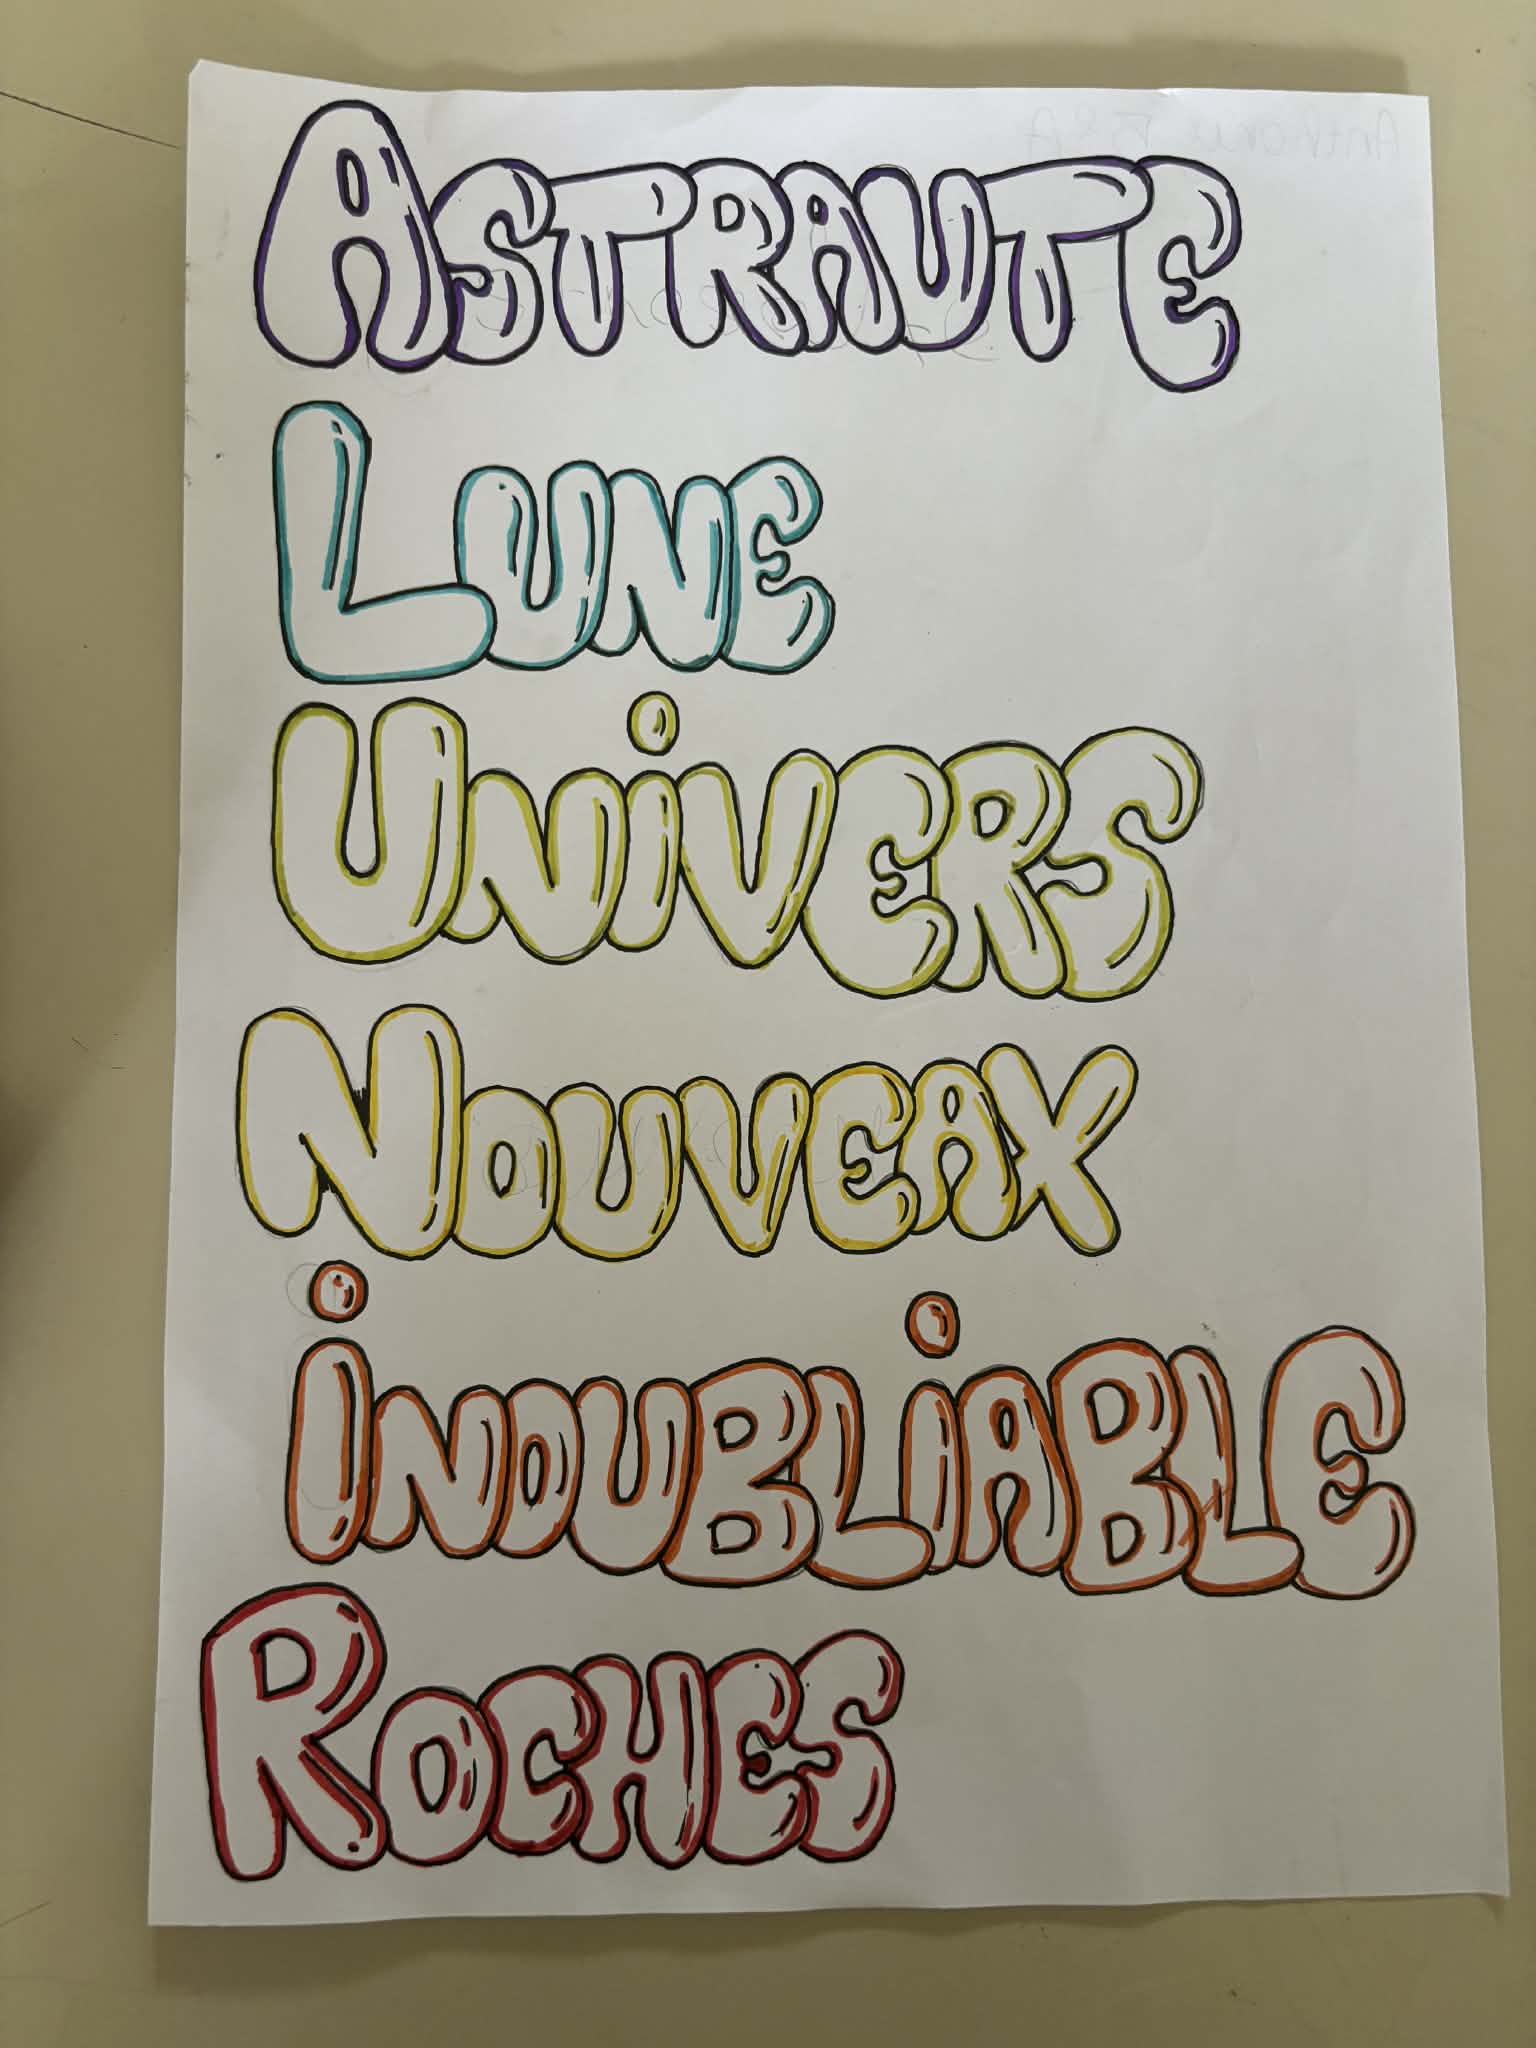 ASTRAUTE
LUNE
UNiVERS
NOUVEAX
iNOUBLiABLE
ROCHES